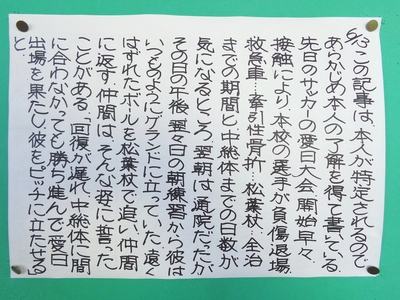 ☆この記事は、本人が特定されるので
あらかじめ本人の了解を得て書いている。
先日のサッカーの愛日大会、開始早々、
接触により、本校の選手が負傷退場。
救急車…牽引性骨折…松葉杖…全治
までの期間と中総体までの日数が
気になるところ。翌朝は、通院だったが
その日の午後、翌々日の朝練習から彼は
いつものようにグランドに立っていた。遠く
はずれたボールを松葉杖で追い、仲間
に返す。仲間は、そんな姿に誓った
ことがある。「回復が遅れ、中総体に間
に合わなかっても勝ち進んで愛日
出場を果たし、彼をピッチに立たせる」
と。